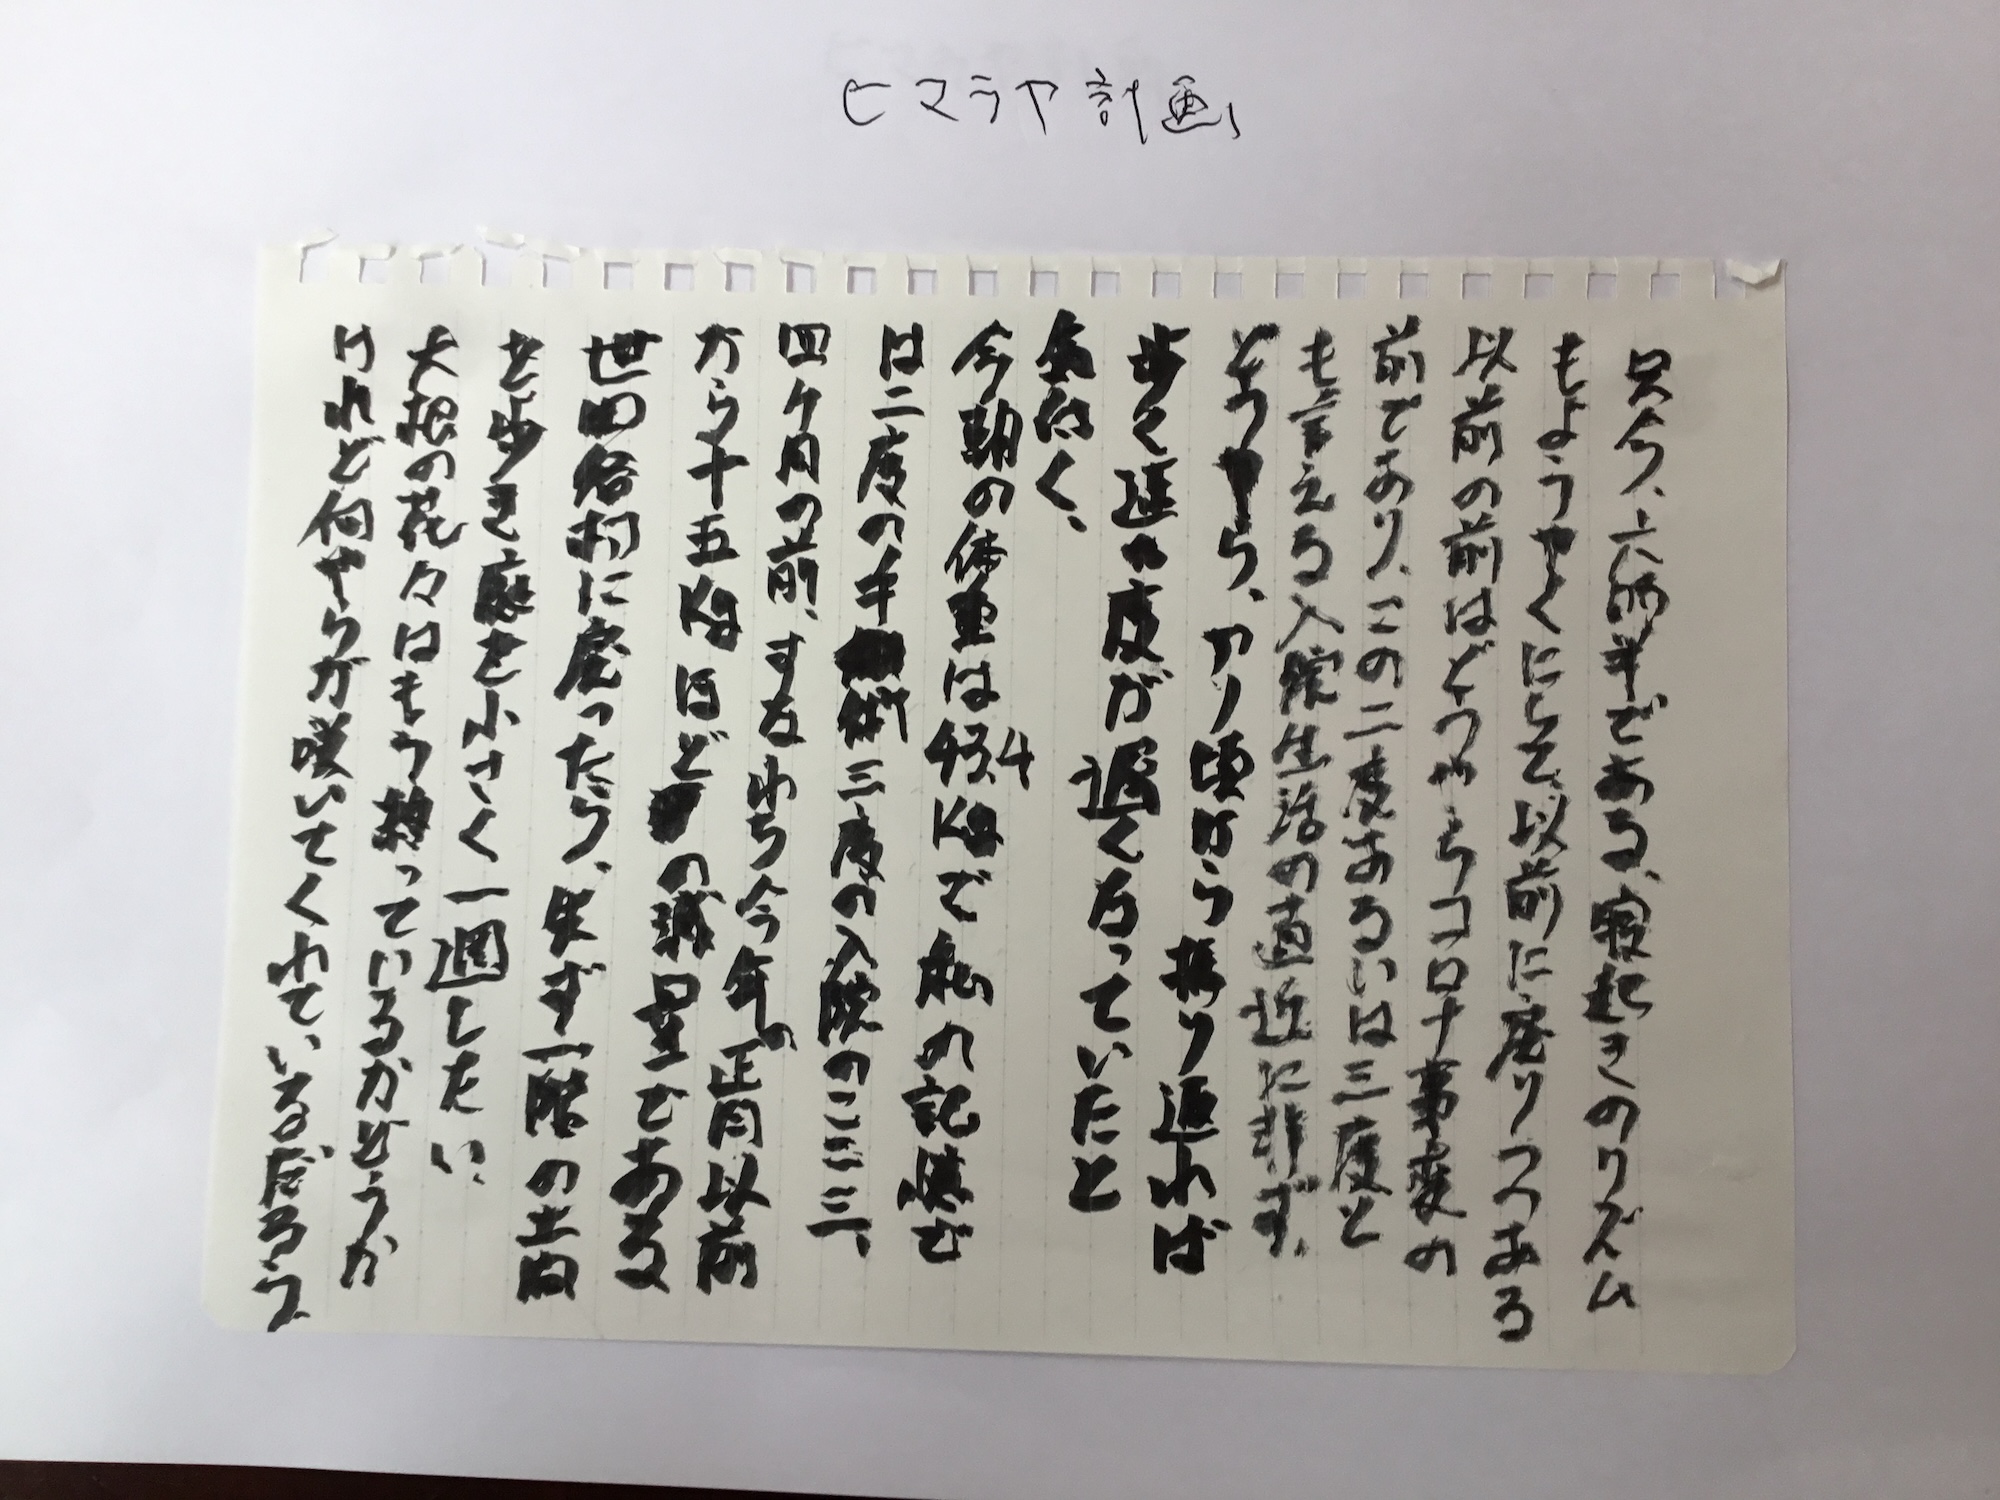 ヒマラヤ計画
只今、六時半である、寝起きのリズム
もようやくにして、以前に戻りつつある
以前の前はどうやらコロナ事変の
前であり、この二度あるいは三度と
も言える入院生活の直近に非ず、
どうやら、アノ頃から振り返れば
歩く速度が遅くなっていたと
気付く、
今朝の体重は43.4Kgで私の記憶で
は二度の手術三度の入院のここ三、
四ヶ月の前、すなわち今年の正月以前
から十五Kgほどの減量である
世田谷村に戻ったら、先ず一階の土間
を歩き庭を小さく一週したい、
大根の花々はもう散っているかどうか
けれど何やらが咲いてくれているだろう、